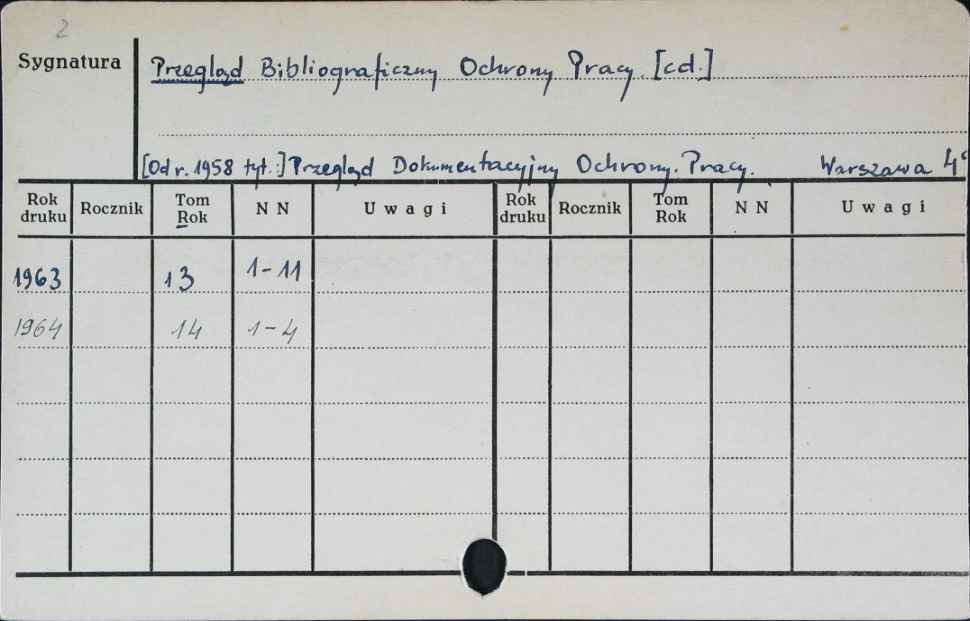 2
Sygnatura
Przegląd Bibliograficzny Ochrony Pracy. [cd.]
[Od r. 1958 tyt.:] Przegląd Dokumentacyjny Ochrony. Pracy. Warszawa 4°
Rok druku Rocznik Tom Rok N N Uwagi Rok druku Rocznik Tom Rok N N Uwagi
1963 13 1-11
1964 14 1-4